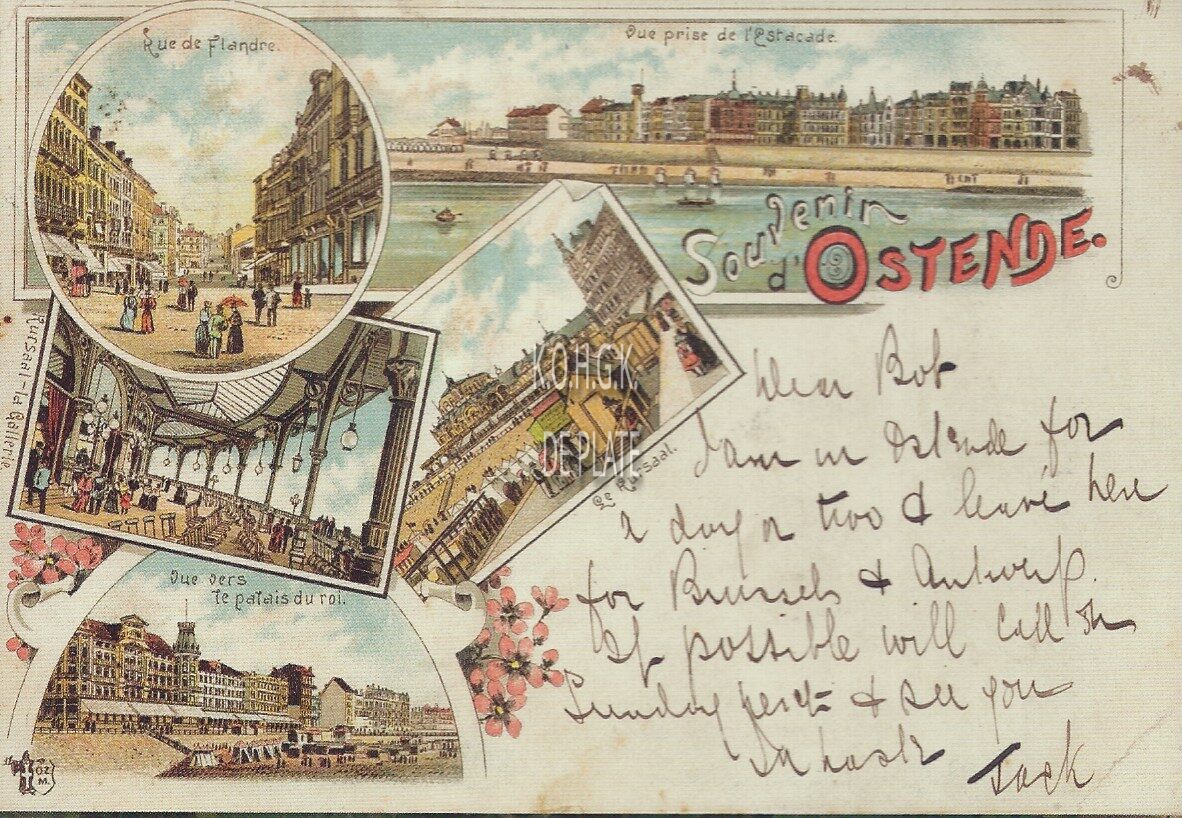 Rue de Flandre.
Vue prise de l'Estacade.
Souvenir
d'OSTENDE.
Kursaal - la Gallerie
Le Kursaal.
Vue vers
le palais du roi.
K.O.H.G.K.
DE PLATE
Dear Bob
I am in Ostende for
a day or two & leave here
for Brussels & Antwerp.
If possible will call on
Sunday next & see you
In haste
Jack